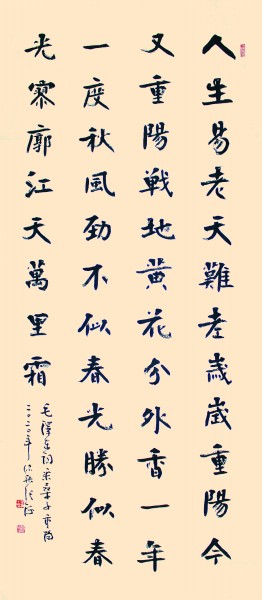 人生易老天難老歲歲重陽今
又重陽戦地黃花分外香一年
一度秋風勁不似春光勝似春
光寥廓江天萬里霜
毛澤東詞采桑子重陽
二〇二〇年